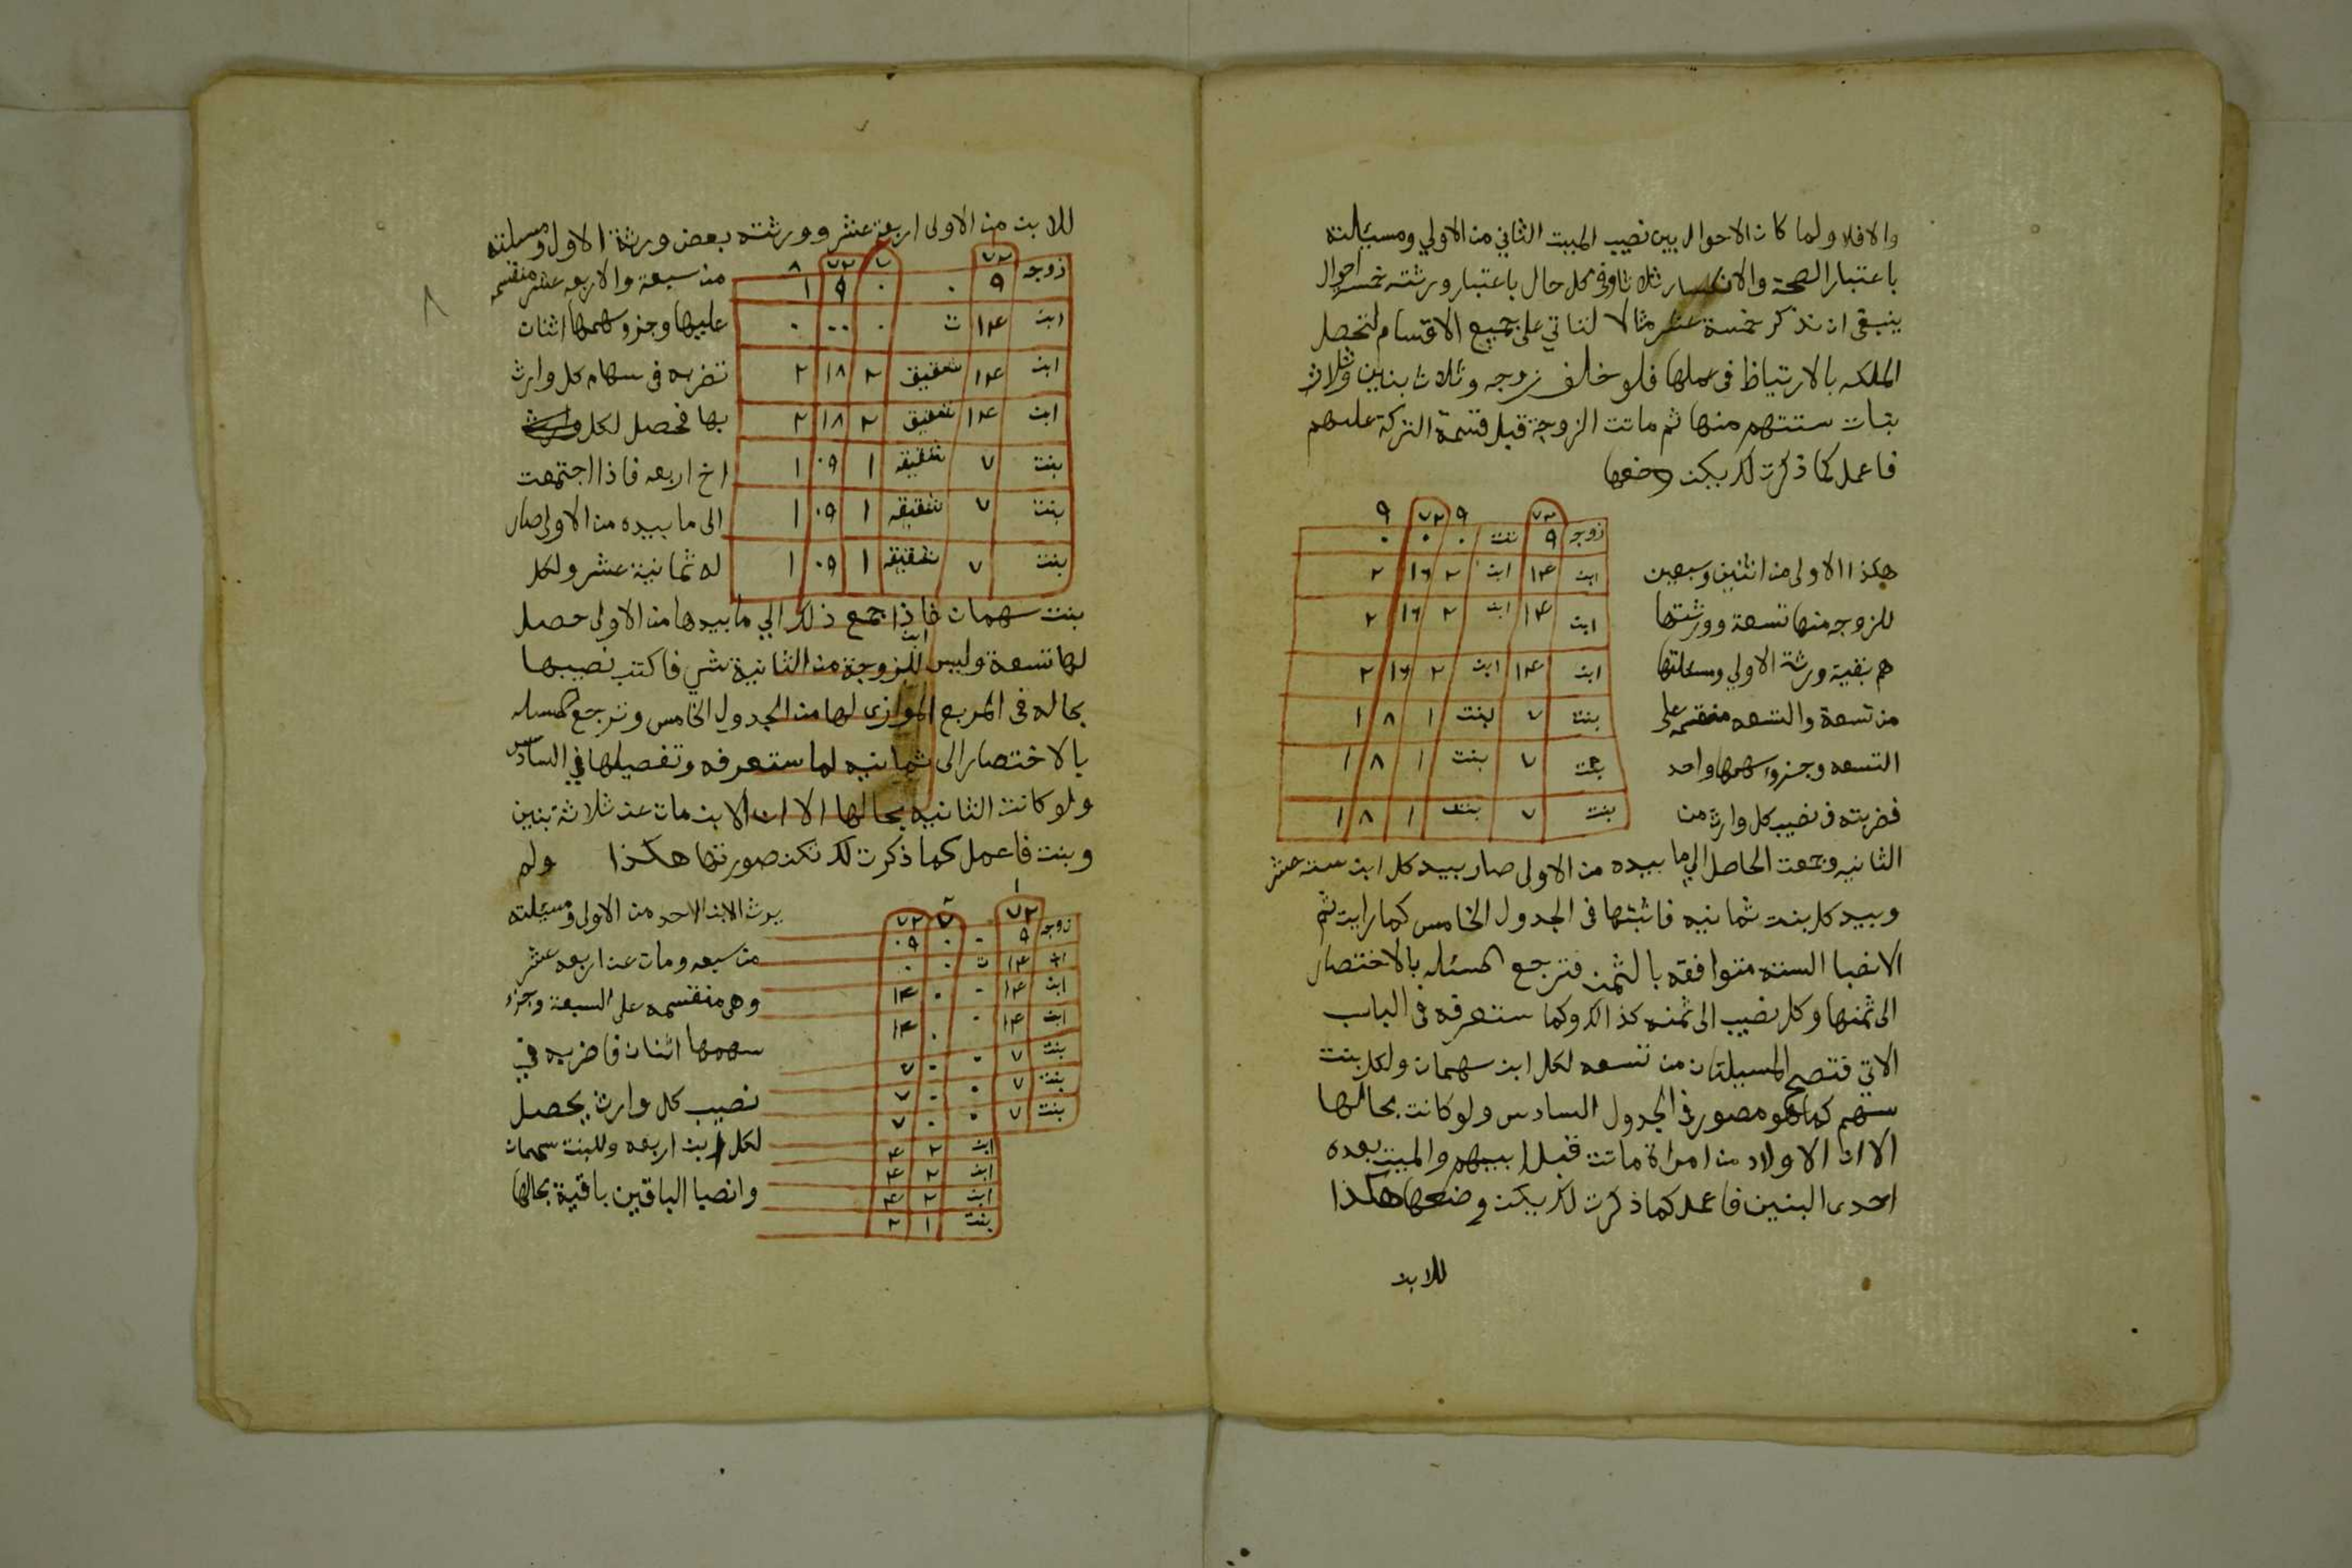 والافلا ولما كان الاحوال بين نصيب الميت الثاني من الاولي ومسئلته
باعتبار الصحة والانكسار ثلاثا وفي كل حال باعتبار ورثته خمس احوال
ينبغي ان نذكر خمسة عشر مثالا لناتي على جميع الاقسام لتحصل
الملكه بالارتياظ في عملها فلو خلف زوجه وثلاث بنين وثلاث
بنات ستتهم منها ثم ماتت الزوجة قبل قسمة التركة عليهم
فاعمل كما ذكرت لك يكن وضعها
٧٢ ٩ ٧٢ ٩
زوجه ٩ تت ٠ ٠ ٠
ابن ١٤ ابن ٢ ١٦ ٢
ابن ١٤ ابن ٢ ١٦ ٢
ابن ١٤ ابن ٢ ١٦ ٢
بنت ٧ بنت ١ ٨ ١
بنت ٧ بنت ١ ٨ ١
بنت ٧ بنت ١ ٨ ١
هكذا الاولى من اثنين وسبعين
للزوجه منها تسعة وورثتها
هم بقية ورثة الاولي ومسئلتها
من تسعة والتسعه منقسمه على
التسعه وجزو سهمها واحد
فضربته في نصيب كل وارث من
الثانيه وجمعت الحاصل الي ما بيده من الاولى صار بيد كل ابن ستة عشر
وبيد كل بنت ثمانيه فاثبتها في الجدول الخامس كما رايت ثم
الانصبا الستة متوافقه بالثمن فترجع المسئله بالاختصار
الى ثمنها وكل نصيب الى ثمنه كذالك وكما ستعرفه في الباب
الاتي فتصح المسيلتان من تسعه لكل ابن سهمان ولكل بنت
سهم كما هو مصور في الجدول السادس ولو كانت بحالها
الا ان الاولاد من امراة ماتت قبل ابيهم والميت بعده
احدى البنين فاعمل كما ذكرت لك يكن وضعها هكذا
للابن
للابن من الاولى اربعة عشر وورثته بعض ورثة الاول ومسيلته
٧٢ ٧ ٧٢ ٨
زوجه ٩ ٠ ٠ ٩ ١
ابن ١٤ ت ٠ ٠٠ ٠
ابن ١٤ شقيق ٢ ١٨ ٢
ابن ١٤ شقيق ٢ ١٨ ٢
بنت ٧ شقيقه ١ ٠٩ ١
بنت ٧ شقيقه ١ ٠٩ ١
بنت ٧ شقيقه ١ ٠٩ ١
من سبعة والاربعه عشر منقسمه
عليها وجزو سهمها اثنان
تضربه في سهام كل وارث
بها فحصل لكل وارث
اخ اربعه فاذا اجتمعت
الى ما بيده من الاولى صار
له ثمانية عشر ولكل
بنت سهمان فاذا جمع ذلك الي ما بيدها من الاولى حصل
لها تسعة وليس للزوجة من الثانية شي فاكتب نصيبها
بحاله في المربع الموازى لها من الجدول الخامس وترجع المسله
بالاختصار الى ثمانيه لما ستعرفه وتفصيلها في السادس
ولو كانت الثانيه بحالها الا ان الابن مات عن ثلاثة بنين
وبنت فاعمل كما ذكرت لك تكن صورتها هكذا ولم
١
٧٢ ٧ ٧٢
زوجه ٩ ٠ ٠ ٠٩
ابن ١٤ ت ٠ ٠
ابن ١٤ ٠ ٠ ١٤
ابن ١٤ ٠ ٠ ١٤
بنت ٧ ٠ ٠ ٧
بنت ٧ ٠ ٠ ٧
بنت ٧ ٠ ٠ ٧
ابن ٢ ٤
ابن ٢ ٤
ابن ٢ ٤
بنت ١ ٢
يرث الابن الاحد من الاولى ومسئلته
من سبعه ومات عن اربعه عشر
وهي منقسمه على السبعة وجزء
سهمها اثنان فاضربه في
نصيب كل وارث يحصل
لكل ابن اربعه وللبنت سهمان
وانصبا الباقين باقية بحالها
٨